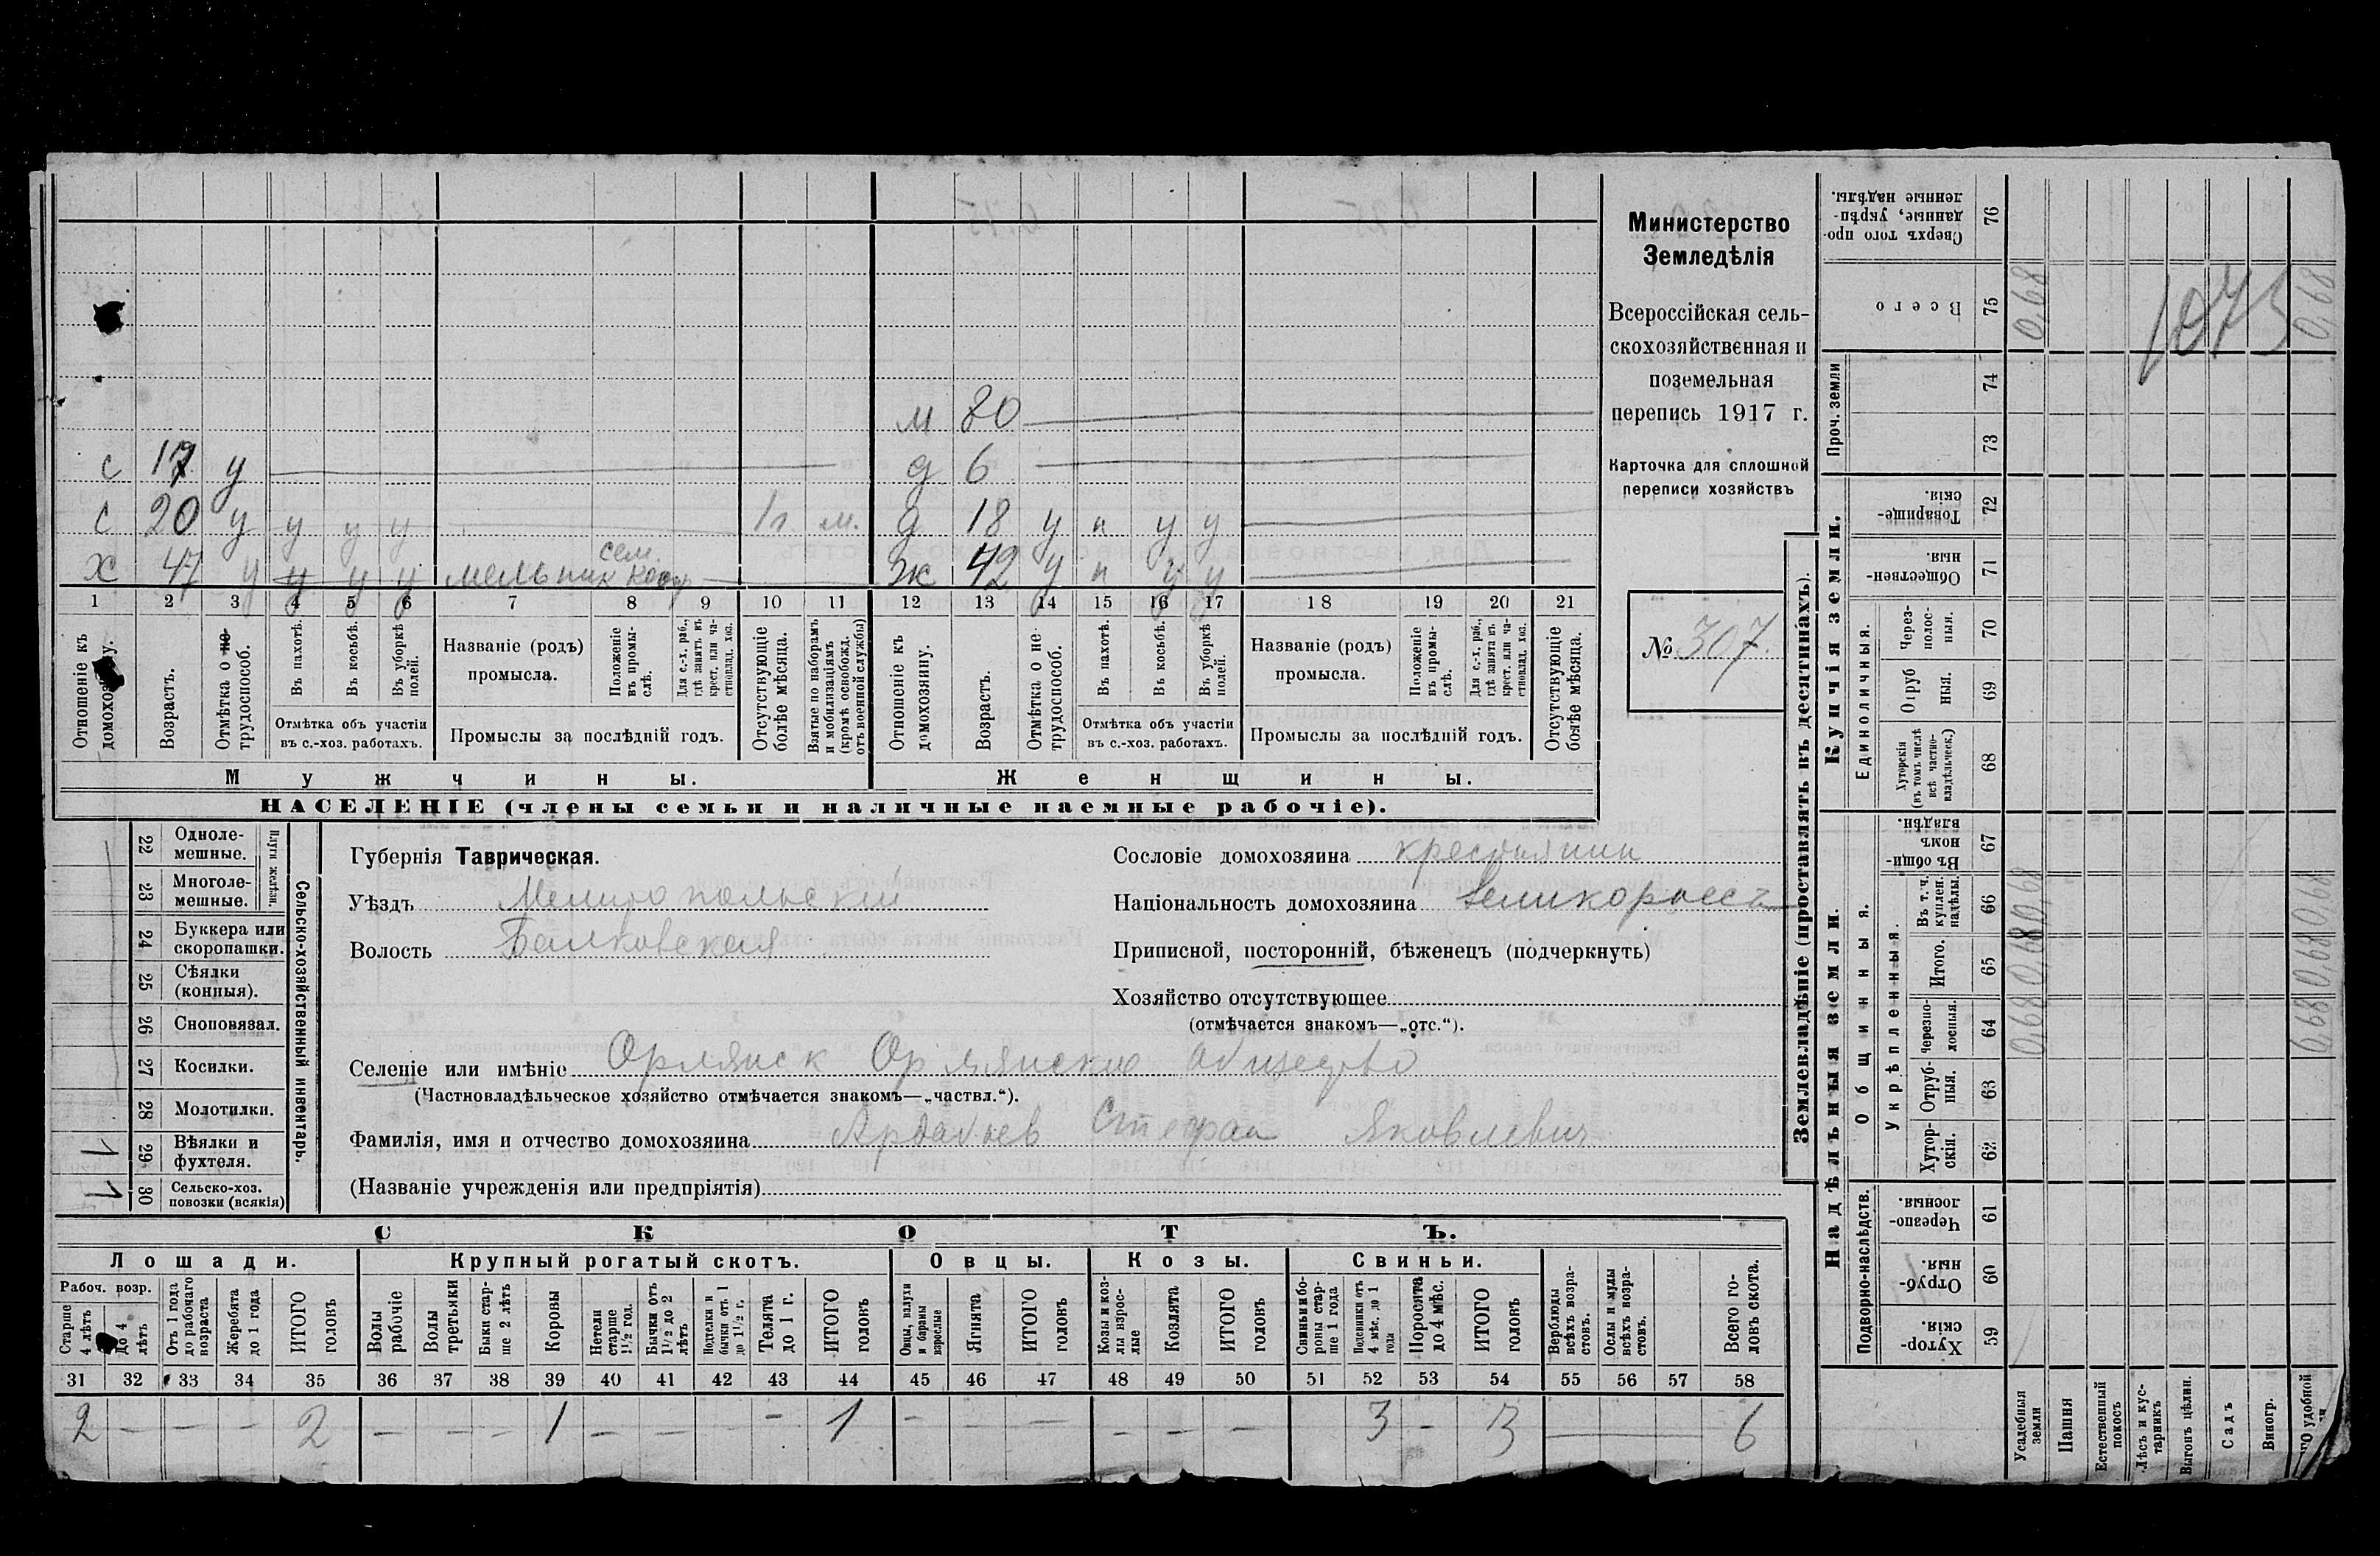 Министерство
Земледѣлія
Всероссійская сель-
скохозяйственная и
поземельная
перепись 1917 г.
Карточка для сплошной
переписи хозяйствъ
№ 307.
м 80
с 17 у
д 6
с 20 у у у у 1 г. м.
д 18 у п у у
х 47 у у у у мельник сем.
ж 42 у п у у
1 2 3 4 5 6 7 8 9 10 11 12 13 14 15 16 17 18 19 20 21
Отношеніе къ домохозяину.
Возрастъ.
Отмѣтка о не-трудоспособ.
Въ пахотѣ.
Въ косьбѣ.
Въ уборкѣ полей.
Отмѣтка объ участіи въ с.-хоз. работахъ.
Названіе (родъ) промысла.
Положеніе въ промы-слѣ.
Для с.-х. раб., гдѣ занятъ въ крест. или ча-стновлад. хоз.
Промыслы за послѣдній годъ.
Отсутствующіе болѣе мѣсяца.
Взятые по наборамъ и мобилизаціямъ (кромѣ освобожд. отъ военной службы)
Отношеніе къ домохозяину.
Возрастъ.
Отмѣтка о не-трудоспособ.
Въ пахотѣ.
Въ косьбѣ.
Въ уборкѣ полей.
Отмѣтка объ участіи въ с.-хоз. работахъ.
Названіе (родъ) промысла.
Положеніе въ промы-слѣ.
Для с.-х. раб., гдѣ занята въ крест. или ча-стновлад. хоз.
Промыслы за послѣдній годъ.
Отсутствующіе болѣе мѣсяца.
Мужчины.
Женщины.
НАСЕЛЕНІЕ (члены семьи и наличные наемные рабочіе).
22 Одноле-мешные.
23 Многоле-мешные.
Плуги желѣзн.
24 Буккера или скоропашки.
25 Сѣялки (конныя).
26 Сноповязал.
27 Косилки.
28 Молотилки.
29 Вѣялки и фухтеля. 1
30 Сельско-хоз. повозки (всякія) 1
Сельско-хозяйственный инвентарь.
Губернія Таврическая.
Уѣздъ Мелитопольскій
Волость Балковская
Сословіе домохозяина крестьянин
Національность домохозяина великороссъ
Приписной, посторонній, бѣженецъ (подчеркнуть)
Хозяйство отсутствующее
(отмѣчается знакомъ—„отс.“).
Селеніе или имѣніе Орлянск Орлянское общество
(Частновладѣльческое хозяйство отмѣчается знакомъ—„частвл.“).
Фамилія, имя и отчество домохозяина Ардабьев Стефан Яковлевич
(Названіе учрежденія или предпріятія)
СКОТЪ.
Лошади. Крупный рогатый скотъ. Овцы. Козы. Свиньи.
Рабоч. возр.
Старше 4 лѣтъ
До 4 лѣтъ
Отъ 1 года до рабочаго возраста
Жеребята до 1 года
ИТОГО головъ
Волы рабочіе
Волы третьяки
Быки стар-ше 2 лѣтъ
Коровы
Нетели старше 1½ год.
Бычки отъ 1½ до 2 лѣтъ
Подтелки и бычки отъ 1 до 1½ г.
Телята до 1 г.
ИТОГО головъ
Овцы, валухи и бараны взрослые
Ягнята
ИТОГО головъ
Козы и коз-лы взрос-лые
Козлята
ИТОГО головъ
Свиньи и бо-ровы стар-ше 1 года
Подсвинки отъ 4 мѣс. до 1 года
Поросята до 4 мѣс.
ИТОГО головъ
Верблюды всѣхъ возра-стовъ.
Ослы и мулы всѣхъ возра-стовъ.
Всего го-ловъ скота.
31 32 33 34 35 36 37 38 39 40 41 42 43 44 45 46 47 48 49 50 51 52 53 54 55 56 57 58
2 — — — 2 — — — 1 — — — 1 — — — — — — 3 — 3 — 6
Землевладѣніе (проставлять въ десятинахъ).
Сверхъ того про-данные, укрѣп-ленные надѣлы. 76
Всего 75 0,68 1073 0,68
Проч. земли 74 73
Купчія земли.
Товарище-скія. 72
Обществен-ныя. 71
Единоличныя.
Через-полос-ныя. 70
Отруб ныя. 69
Хуторскія (въ томъ числѣ всѣ частно-владѣльческ.) 68
Надѣльныя земли.
Общинныя.
Въ общи-номъ владѣн. 67
Укрѣпленныя.
Въ т. ч. куплен. надѣлы. 66 0,68 0,68
Итого. 65 0,68 0,68
Черезпо-лосныя. 64 0,68 0,68
Отруб-ныя. 63
Хутор-скія. 62
Подворно-наслѣдств.
Черезпо-лосныя 61
Отруб-ныя. 60
Хутор-скія. 59
Усадебныя земли
Пашня
Естественный покосъ
Лѣсъ и кус-тарникъ
Выгонъ цѣлин.
Садъ
Виногр.
удобной